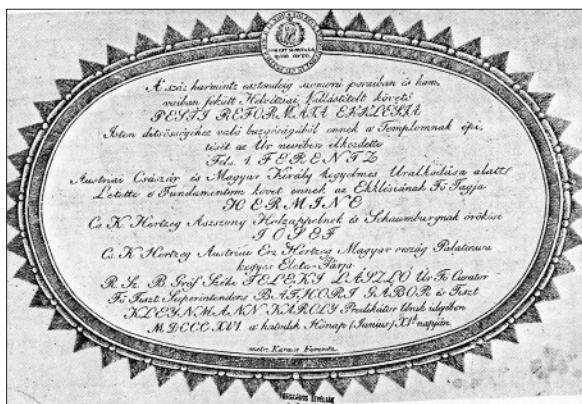 A' száz harmintz esztendeig szomorú poraiban és ham-
vaiban feküdt Helvétziai Vallástételt követő
PESTI REFORMATA EKKLESIA
Isten ditsősségéhez való buzgóságából ennek a Templomnak épí-
tését az Úr nevében elkezdette
Fels. I. FERENTZ
Austriai Császár és Magyar Király kegyelmes Uralkodása alatt
Letette e Fundamentom követ ennek az Ekklésiának Fő Tagja
HERMINE
Cs. K. Hertzeg Aszszony Holzappelnek és Schaumburgnak örökösse
JOSEF
Cs. K. Hertzeg Austriai Erz Hertzeg Magyar ország Palatinusa
kegyes Élete-Párja
R. Sz. B. Gróf Széki TELEKI LASZLÓ Úr Fő Curator
Fő Tiszt. Superintendens BATHORI GABOR és Tiszt.
KLEYNMANN KAROLY Predikátor Urak idejében
MDCCCXVI. a hatodik Hónap (Junius) XI. napján
metz. Karacs Ferentz
ORSZÁGOS LEVÉLTÁR